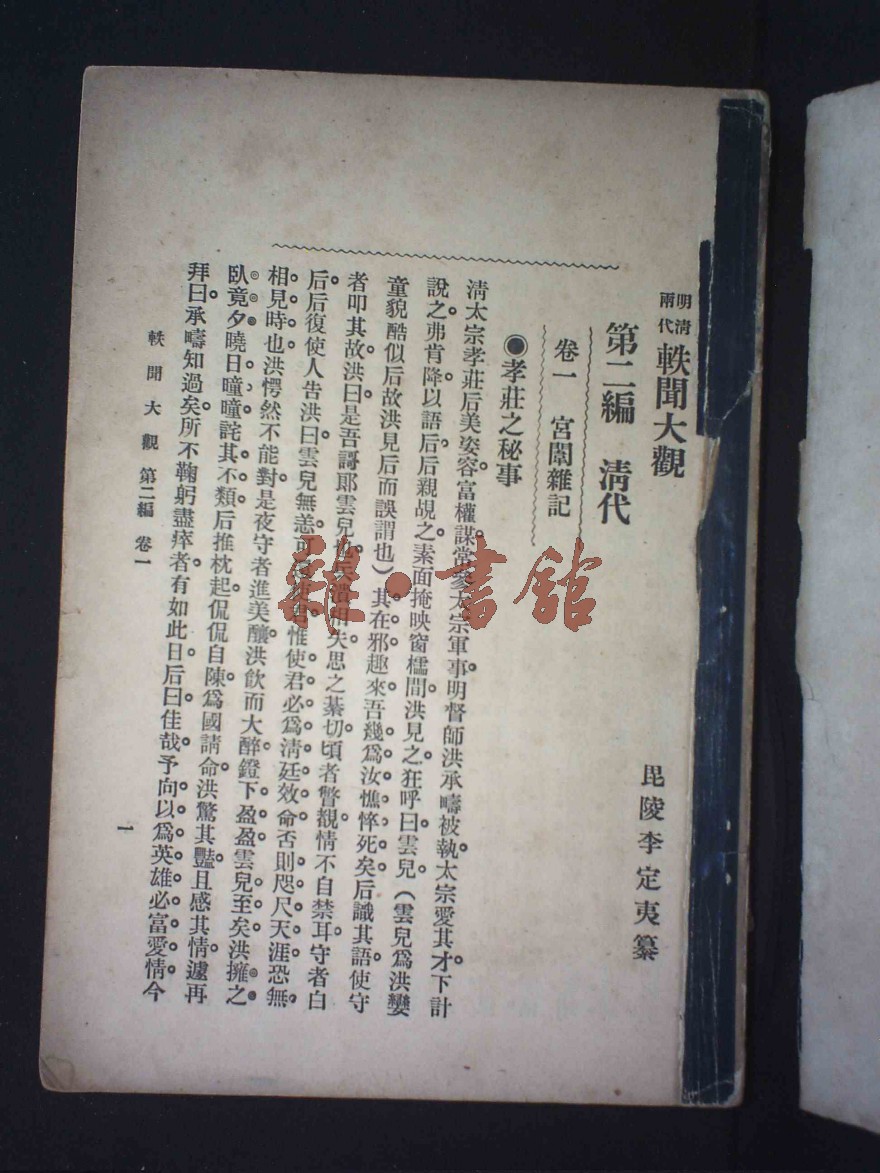 明清兩代軼聞大觀
毘陵李定夷纂
第二編　清代
卷一　宮闈雜記
●孝莊之秘事
清太宗孝莊后美姿容富權謀常參太宗軍事明督師洪承疇被執太宗愛其才下計
說之弗肯降以語后后親覘之素面掩映窗櫺間洪見之狂呼曰雲兒（雲兒爲洪孌
童貌酷似后故洪見后而誤謂也）其在邪趣來吾幾爲汝憔悴死矣后識其語使守
者叩其故洪曰是吾謌郞雲兒也兵潰相失思之綦切頃者瞥覩情不自禁耳守者白
后后復使人告洪曰雲兒無恙可君惟使君必爲淸廷效命否則咫尺天涯恐無
相見時也洪愕然不能對是夜守者進美釀洪飮而大醉鐙下盈盈雲兒至矣洪擁之
臥竟夕曉日曈曈詫其不類后推枕起侃侃自陳爲國請命洪驚其豔且感其情遽再
拜曰承疇知過矣所不鞠躬盡瘁者有如此日后曰佳哉予向以爲英雄必富愛情今
軼聞大觀　第二編　卷一
一
雜·書館